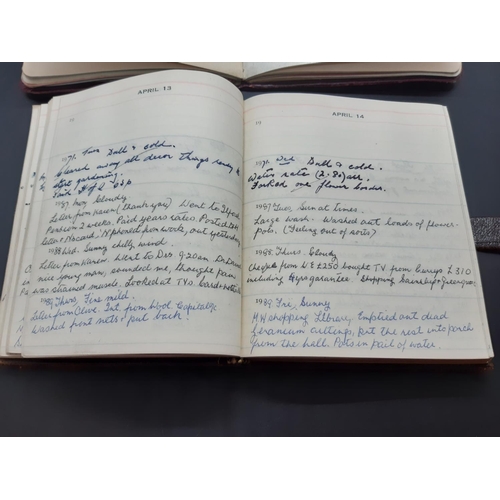 APRIL 13
19
1971. Tues Dull & cold.
Cleared away all decor things ready to
start gardening.
1987 Mon. Cloudy
Letter from Karen (thank you) Went to Ilford
Pension 2 weeks. Paid years rates. Posted
letter N phoned from work, out yesterday
1988 Wed. Sunny chilly wind.
Letter from Karen. Went to Drs 9.20am.
nice young man, sounded me, thought pain
was strained muscle. Looked at TVs.
1989 Thurs, Fine mild.
Letter from Clive. Int. from L'pool Capital
Washed front nets & put back.
APRIL 14
19
1971. Wed Dull & cold.
Water rates (2.80)
Forked one flower border.
1987 Tues, Sun at times.
Large wash. Washed out loads of flower-
pots. (Feeling out of sorts)
1988. Thurs. Cloudy
Cheque from £250 bought TV from Currys £310
including 4yrs guarantee. Shopping Sainsburys + Greengrocers
1989 Fri, Sunny
H.W shopping Library. Emptied out dead
Geranium cuttings, put the rest into porch
from the hall. Pots in pail of water.